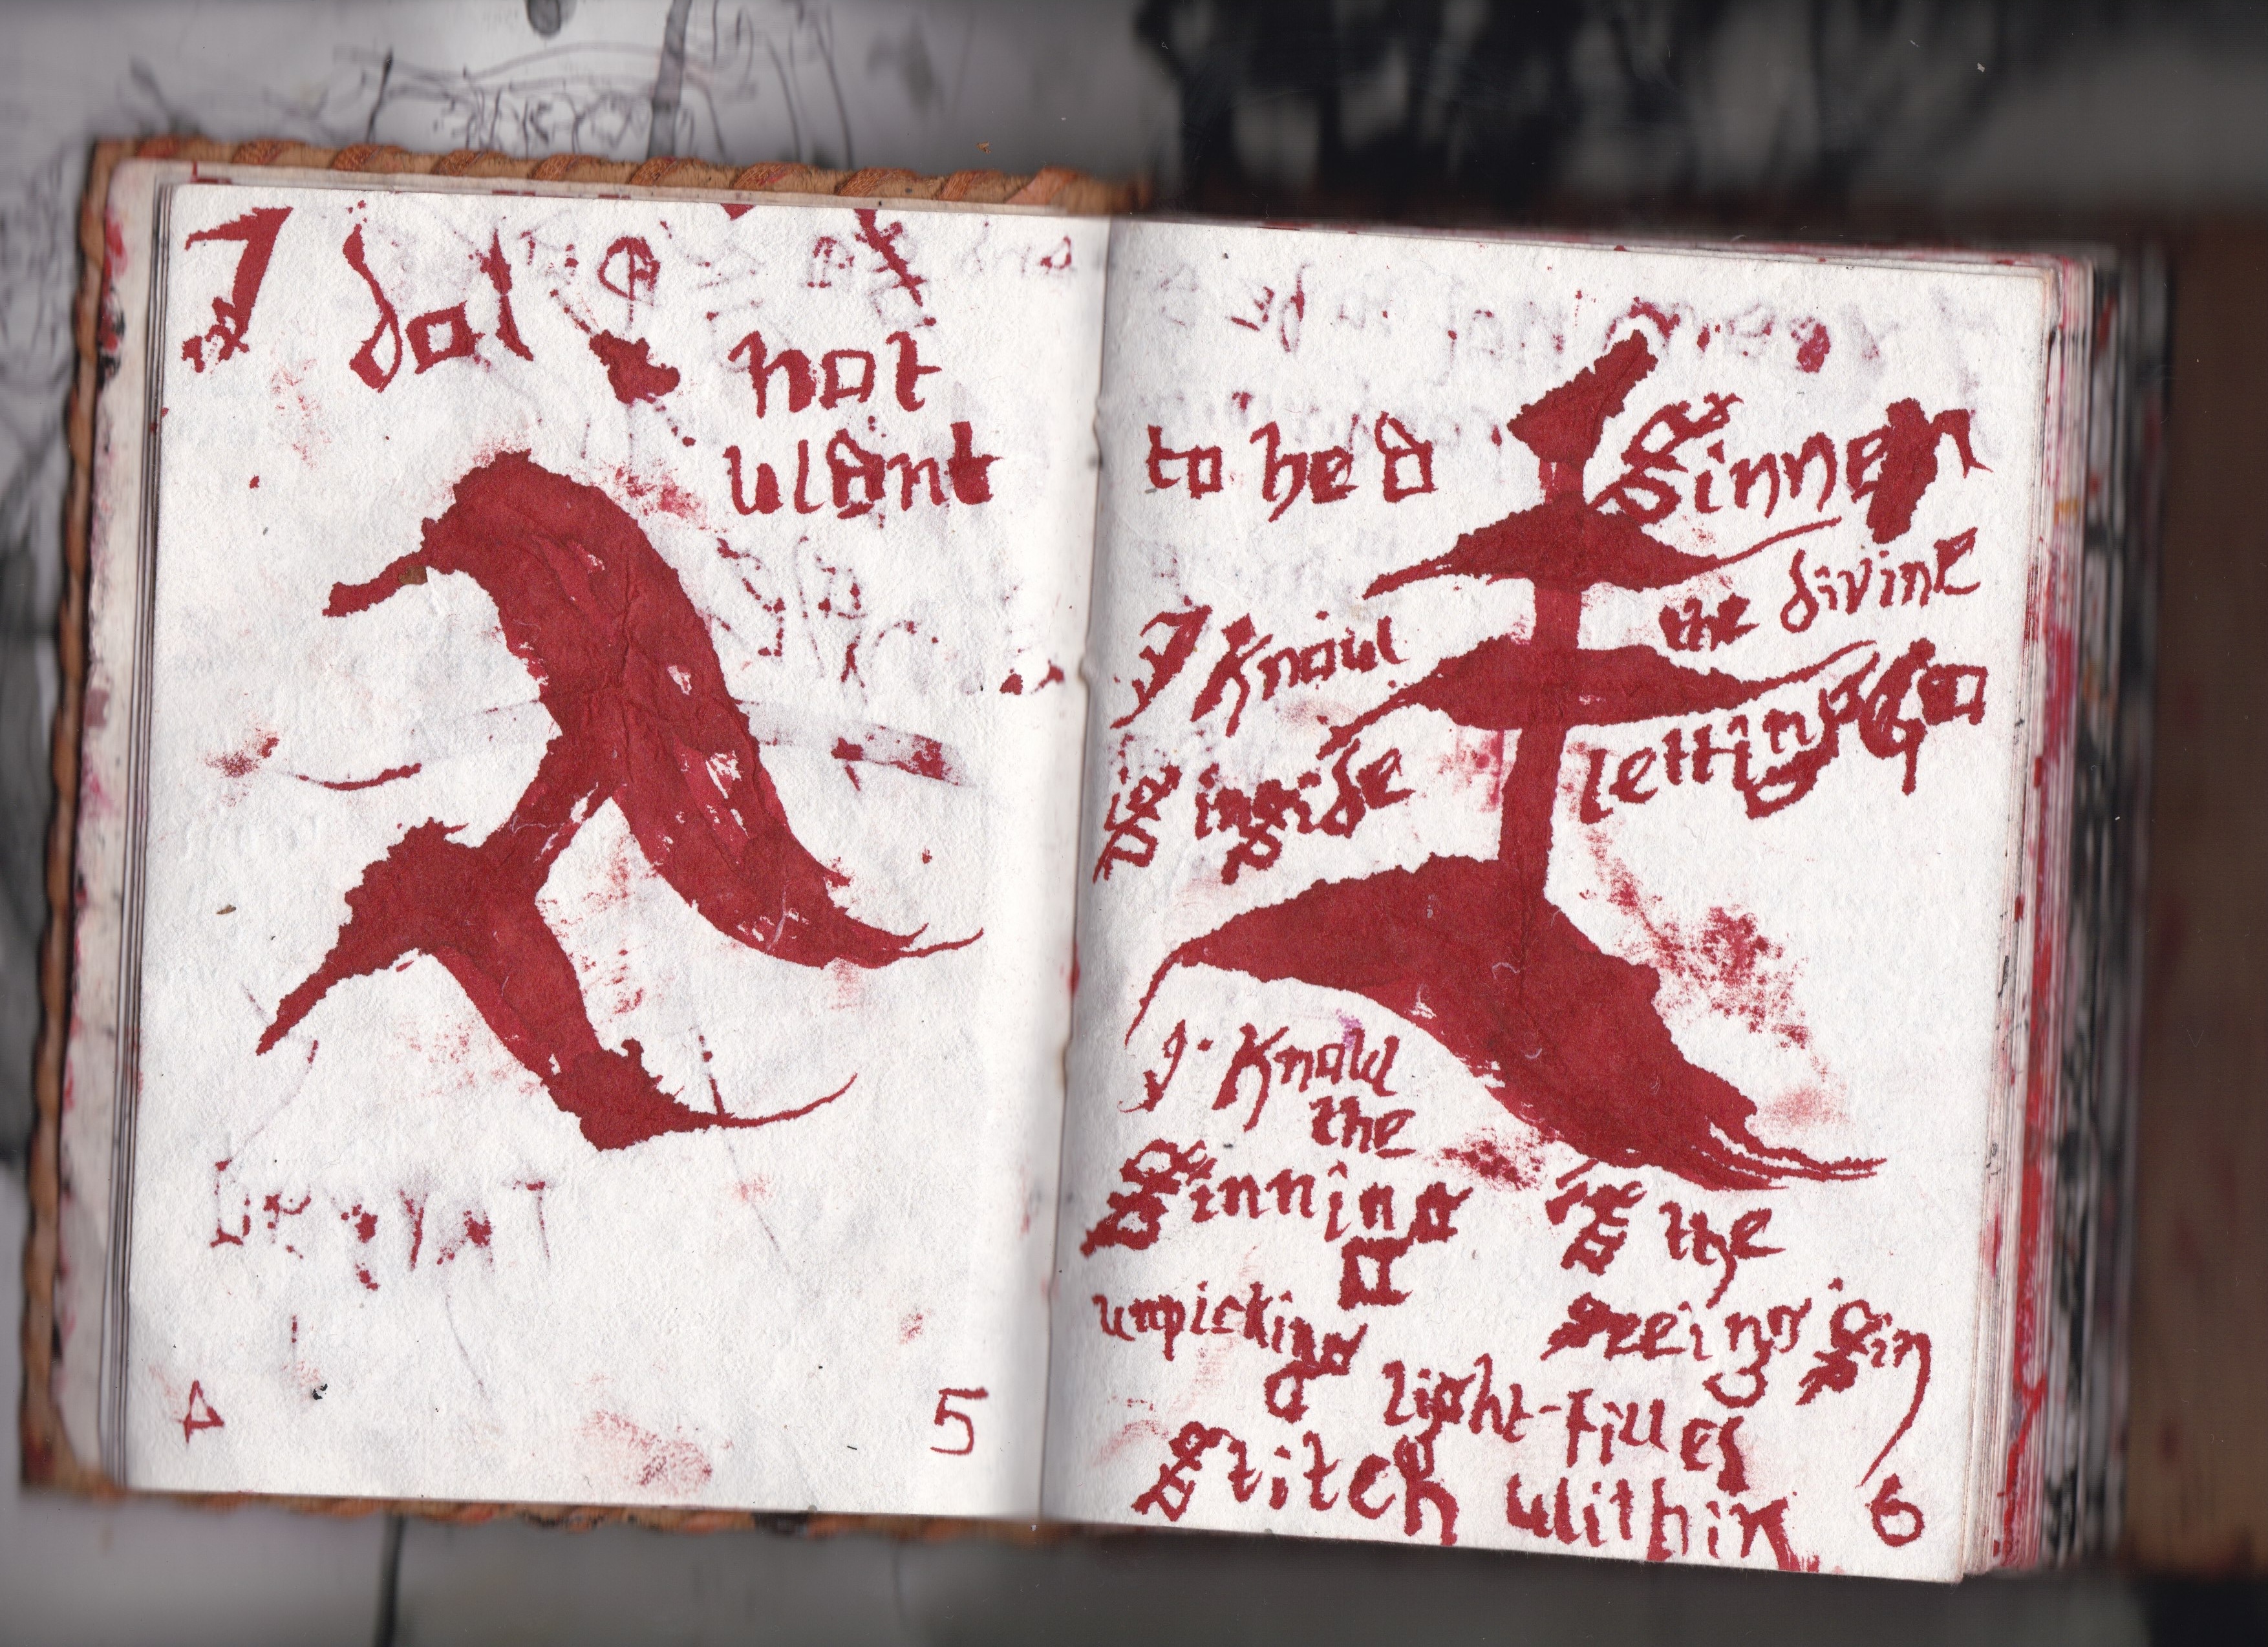 I do not
want
to be a Sinner
I know the divine
is inside letting go
I know
the
Sinning is the
unpicking seeing Sin
light-filles
Stitch within
5
6